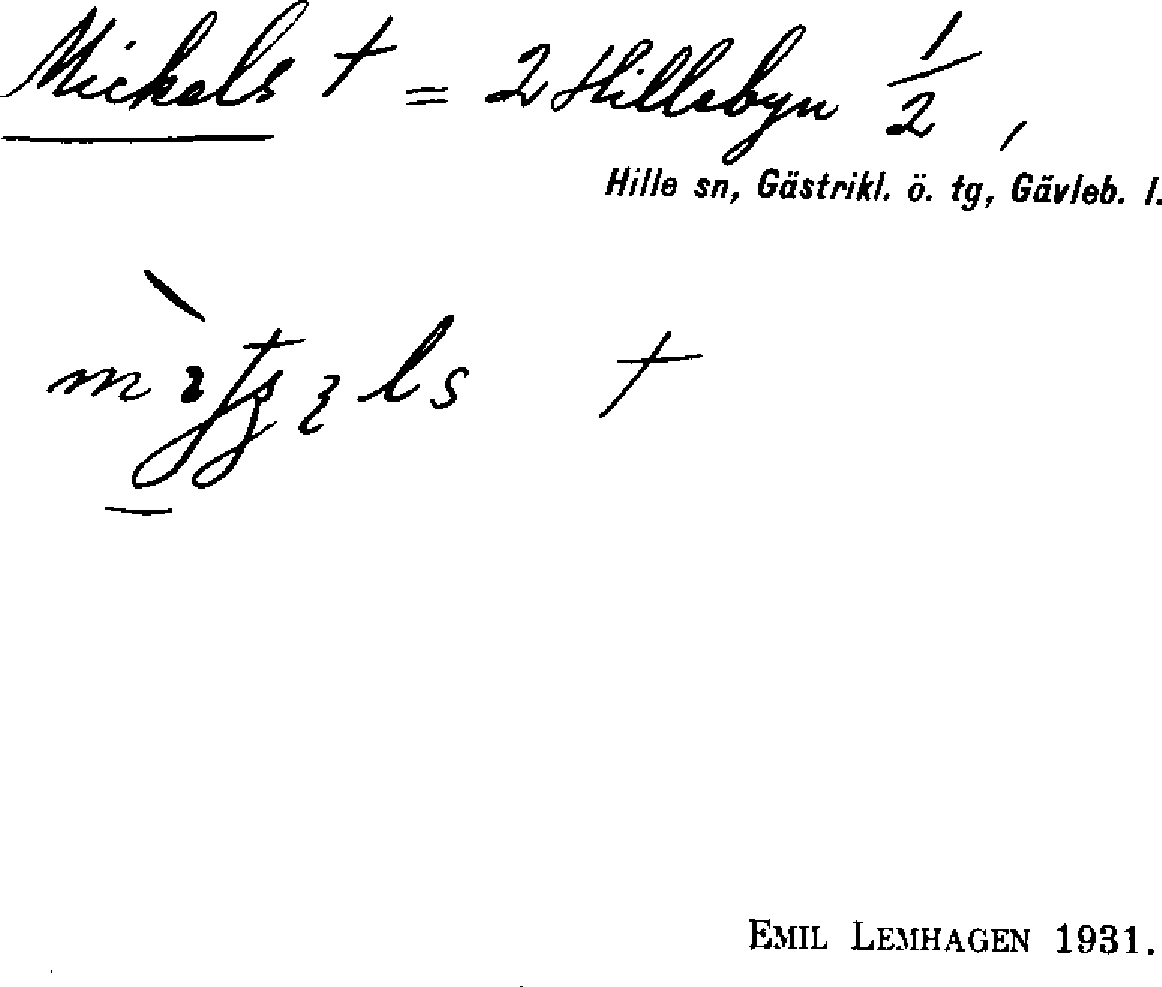 Mickels † = 2 Hillebyn 1/2,
Hille sn, Gästrikl. ö. tg, Gävleb. l.
†
EMIL LEMHAGEN 1931.